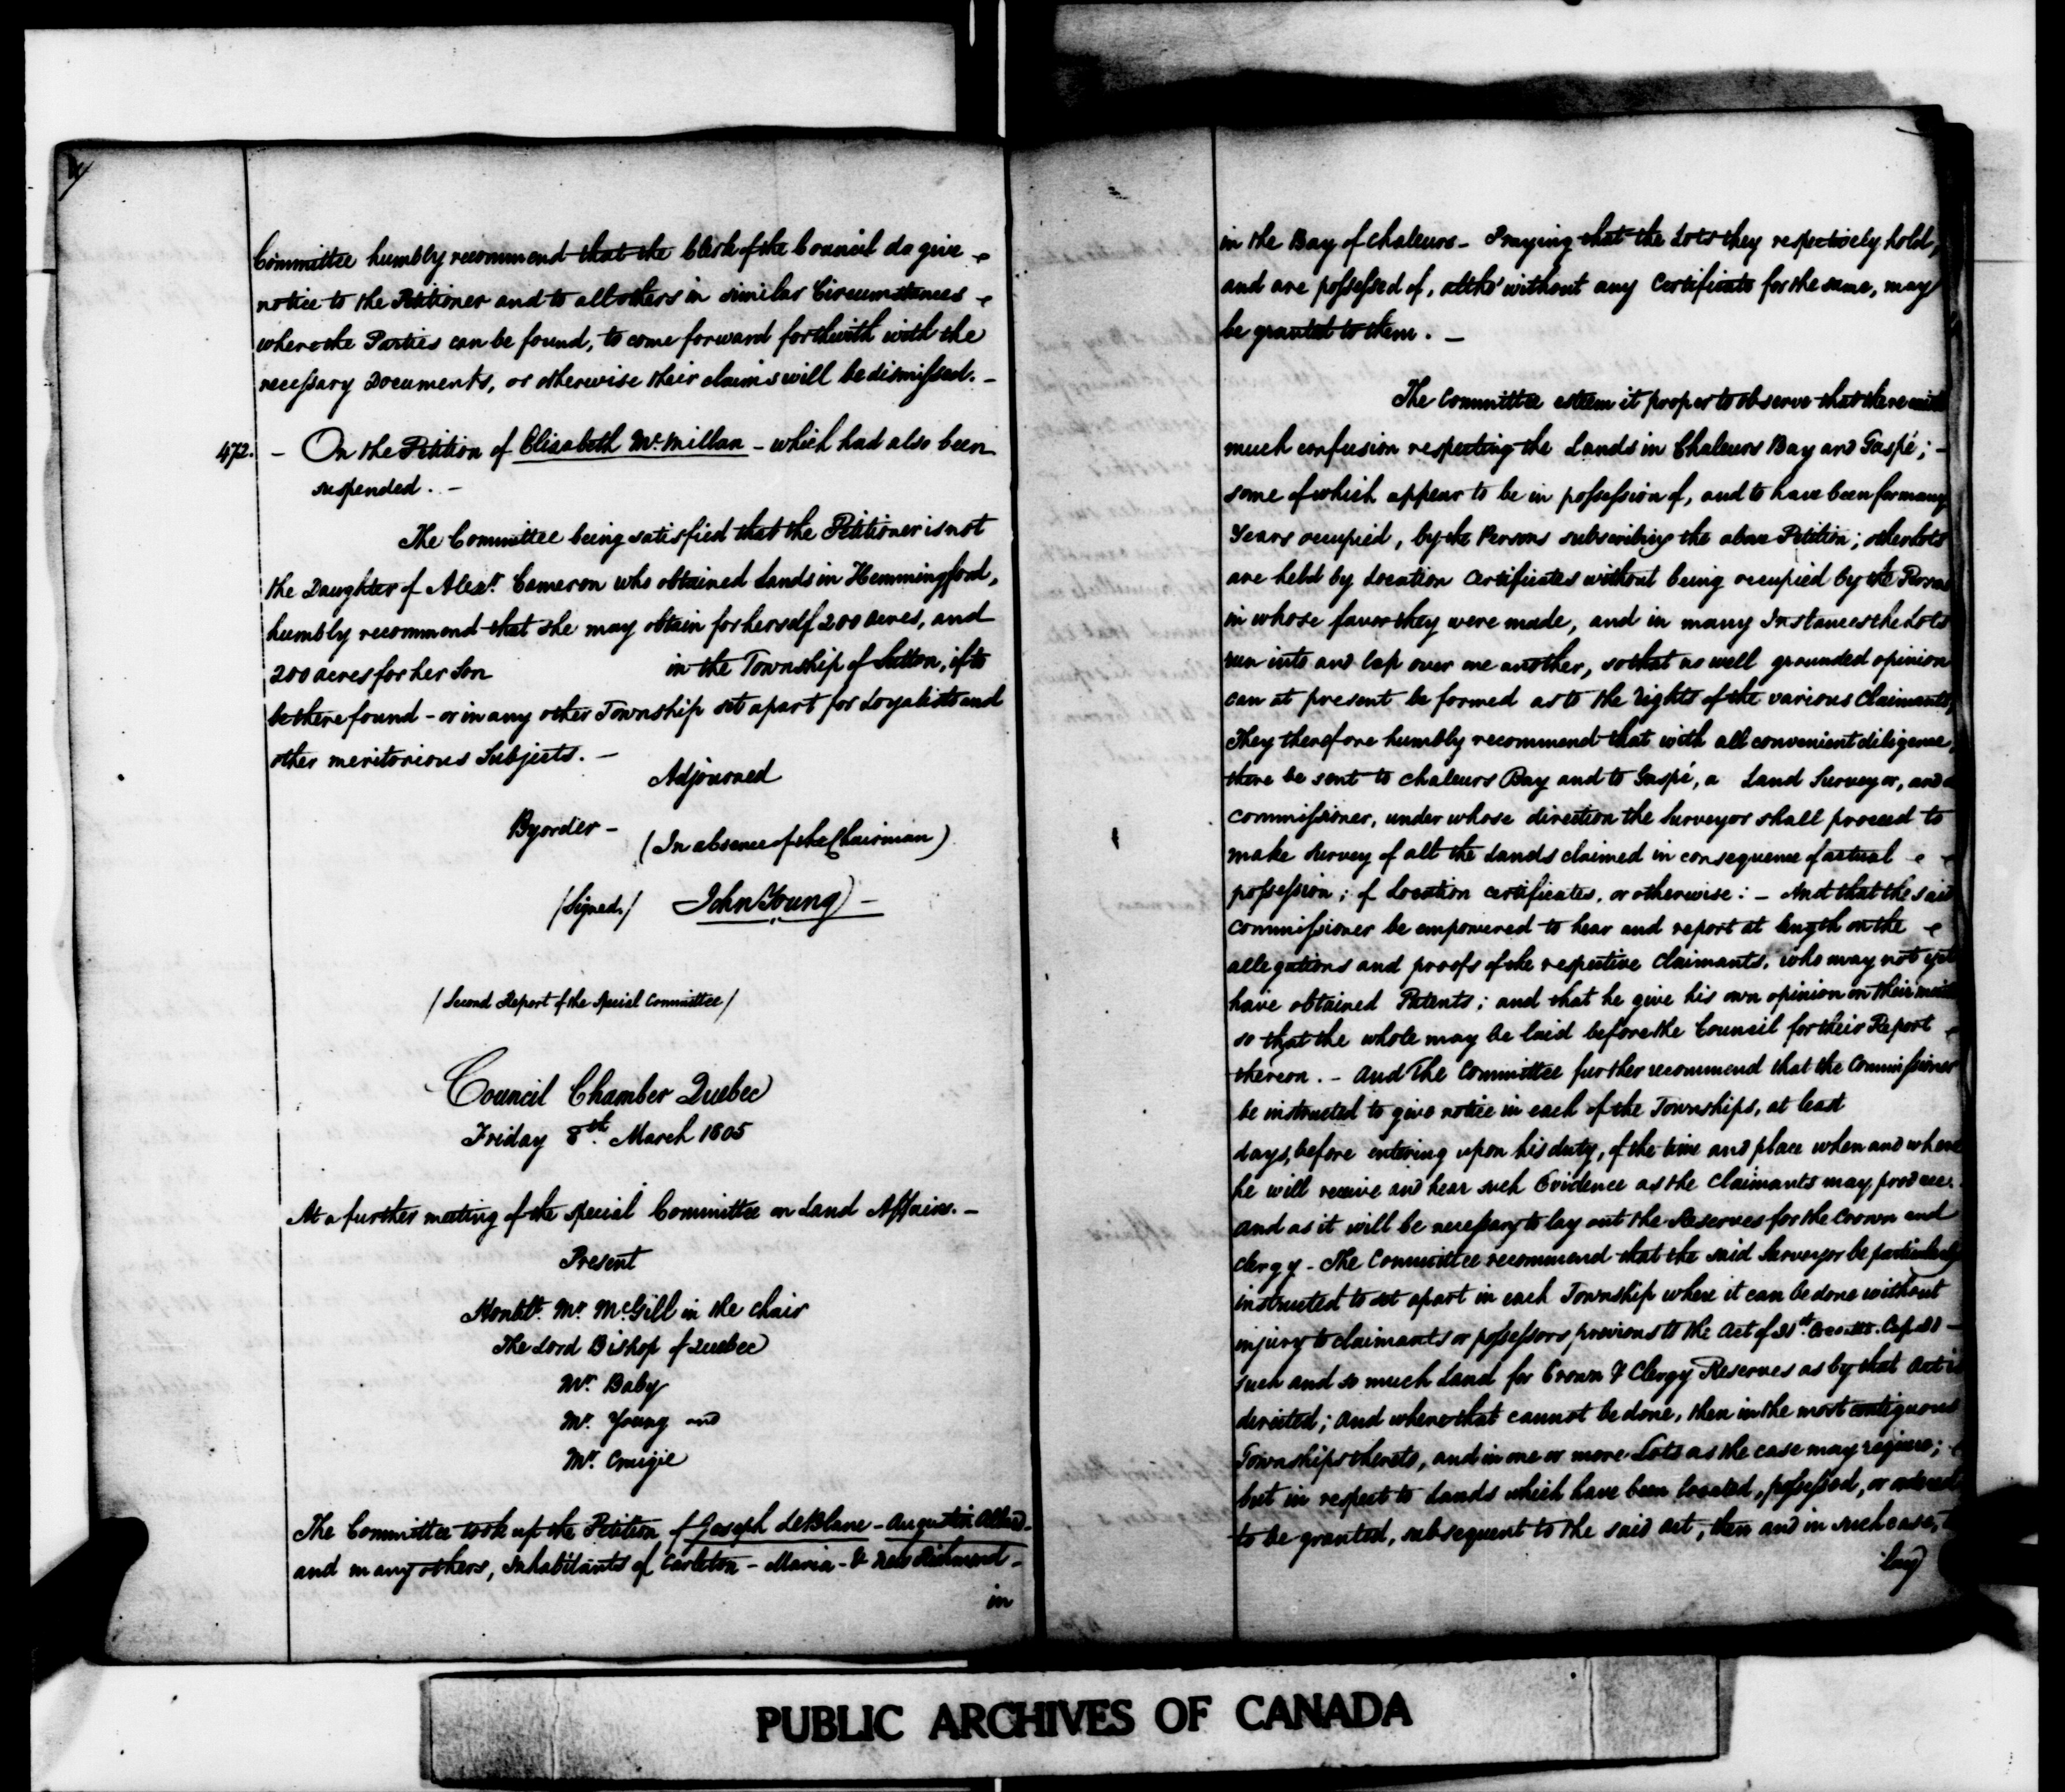 Committee humbly recommend that the Clerk of the Council do give
notice to the Petitioner and to all others in similar Circumstances
where the Parties can be found, to come forward forthwith with the
necessary Documents, or otherwise their claims will be dismissed. –
472. – On the Petition of Elizabeth McMillan – which had also been
suspended. –
The Committee being satisfied that the Petitioner is not
the Daughter of Alexr. Cameron who obtained Lands in Hemmingford,
humbly recommend that she may obtain for herself 200 acres, and
200 acres for her Son in the Township of Sutton, if to
be there found – or in any other Township set apart for Loyalists and
other meritorious Subjects. –
Adjourned
By order –
(In absence of the Chairman)
/Signed/ John Young –
/Second Report of the Special Committee/
Council Chamber Quebec
Friday 8th. March 1805
At a further meeting of the Special Committee on Land Affairs. –
Present
Honble. Mr. McGill in the Chair
The Lord Bishop of Quebec
Mr. Baby
Mr. Young and
Mr. Craigie
The Committee took up the Petition of Joseph LeBlanc – Augustin Allard –
and many others, Inhabitants of Carleton – Maria – & New Richmond –
in
in the Bay of Chaleurs – Praying that the Lots they respectively hold,
and are possessed of, altho' without any Certificate for the same, may
be granted to them. –
The Committee esteem it proper to observe that there
much confusion respecting the Lands in Chaleurs Bay and Gaspé; –
some of which appear to be in possession of, and to have been for many
Years occupied, by the Persons subscribing the above Petition; other lots
are held by Location Certificates without being occupied by the Persons
in whose favor they were made, and in many Instances the Lots
run into and lap over one another, so that no well grounded opinion
can at present be formed as to the rights of the various Claimants,
They therefore humbly recommend that with all convenient diligence,
there be sent to Chaleurs Bay and to Gaspé, a Land Surveyor, and a
Commissioner, under whose direction the Surveyor shall proceed to
make Survey of all the Lands claimed in consequence of actual
possession; of Location Certificates, or otherwise: – And that the said
Commissioner be empowered to hear and report at length on the
allegations and proofs of the respective Claimants, who may not yet
have obtained Patents; and that he give his own opinion on their merits
so that the whole may be laid before the Council for their Report
thereon. – And The Committee further recommend that the Commissioner
be instructed to give notice in each of the Townships, at least
days, before entering upon his duty, of the time and place when and where
he will receive and hear such Evidence as the Claimants may produce.
And as it will be necessary to lay out the Reserves for the Crown and
Clergy – The Committee recommend that the said Surveyor be particularly
instructed to set apart in each Township where it can be done without
injury to claimants or possessors previous to the Act of 31st. Geo. III. Cap. 31 –
such and so much Land for Crown & Clergy Reserves as by that Act is
directed; and where that cannot be done, then in the most contiguous
Townships thereto, and in one or more Lots as the case may require;
but in respect to Lands which have been located, possessed, or ordered
to be granted, subsequent to the said Act, then and in such case,
lay
PUBLIC ARCHIVES OF CANADA